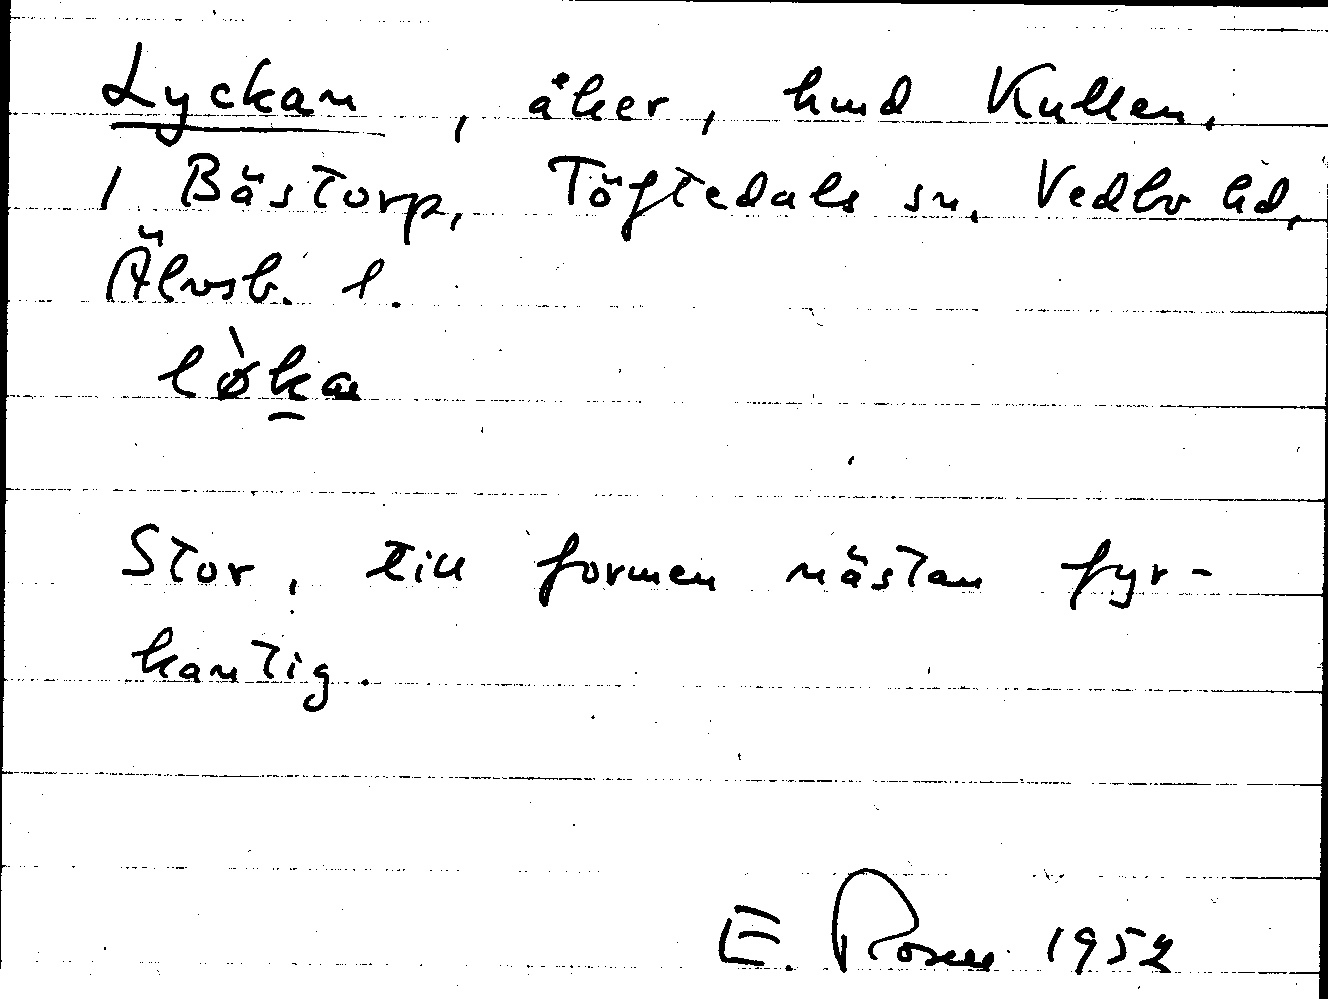 Lyckan, åker, hmd Kullen,
1 Bästorp, Töftedals sn, Vedbo hd,
Älvsb. l.
lø̀ka
Stor, till formen nästan fyr-
kantig.
E. Rosen 1952